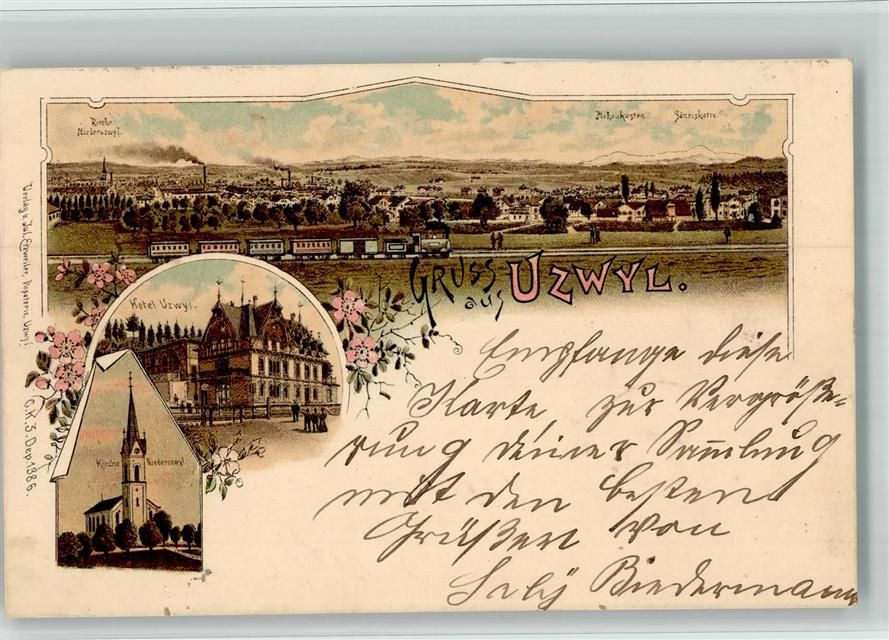 Kirche
Niederuzwyl.
Hohenkasten
Säntiskette
Gruss
aus
Uzwyl.
Hotel Uzwyl.
Kirche Niederuzwyl
C.K.3.Dep.1386.
Empfange diese
Karte, zur Vergröße-
rung deiner Sammlung
mit den besten
Grüßen von
Biedermann